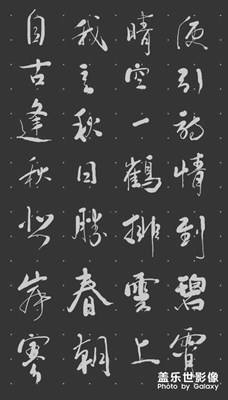 自古逢秋悲寂寥
我言秋日勝春朝
晴空一鶴排雲上
便引詩情到碧霄
盖乐世影像
Photo by Galaxy